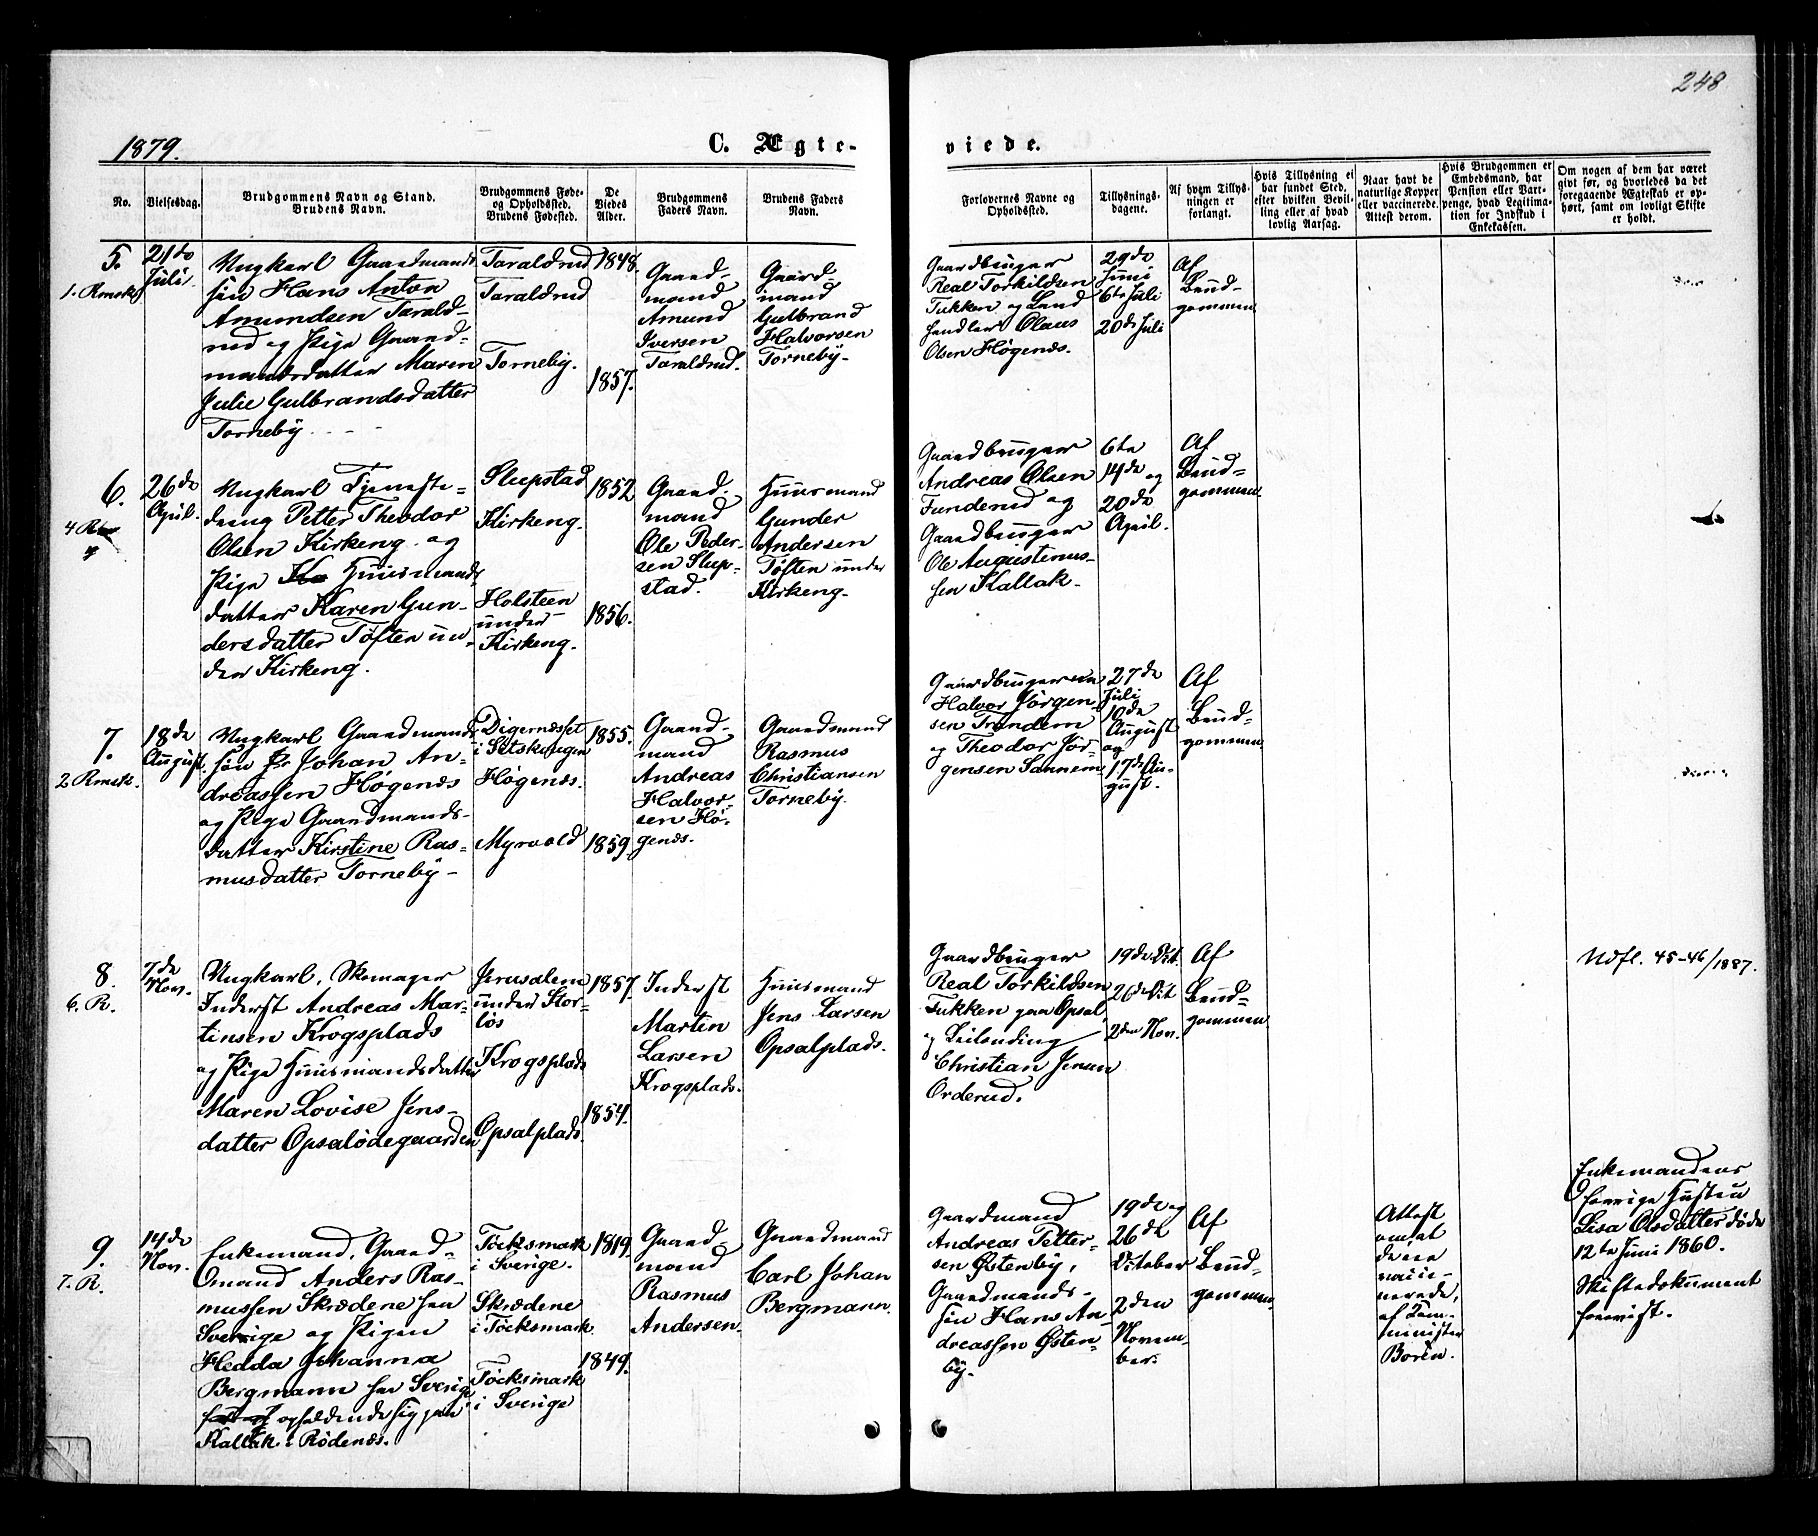 248
1879.
C. Ægte-
viede.
No.
Vielsesdag.
Brudgommens Navn og Stand.
Brudens Navn.
Brudgommens Føde-
og Opholdssted.
Brudens Fødested.
De
Viedes
Alder.
Brudgommens
Faders Navn.
Brudens Faders
Navn.
Forlovernes Navne og
Opholdssted.
Tillysnings-
dagene.
Af hvem Tillys-
ningen er
forlangt.
Hvis Tillysning ei
har fundet Sted,
efter hvilken Bevil-
ling eller af hvad
lovlig Aarsag.
Naar havt de
naturlige Kopper
eller vaccinerede.
Attest derom.
Hvis Brudgommen er
Embedsmand, har
Pension eller Vart-
penge, hvad Legitima-
tion for Indskud i
Enkekassen.
Om nogen af dem har været
givt før, og hvorledes da det
foregaaende Ægteskab er op-
hørt, samt om lovligt Skifte
er holdt.
5.
21de
Juli
Ungkarl Gaardmands
søn Hans Anton
Amundsen Tarald-
rud og Pige Gaard-
mandsdatter Maren
Julie Gulbrandsdatter
Torneby
Taraldrud
Taraldrud
Torneby.
1848.
1857.
Gaard-
mand
Amund
Iversen
Taraldrud.
Gaard-
mand
Gulbrand
Halvorsen
Torneby-
Gaardbruger
Real Torkildsen
Tukken og Land
handler Olaus
Olsen Høgenæs.
29de
Juni
6te Juli
20de Juli
Af
Brud-
gommen
6.
26de
April.
Ungkarl Tjeneste-
dreng Petter Theodor
Olsen Kirkeng og
Pige Huusmands
datter Karen Gun-
dersdatter Toften un-
der Kirkeng.
Slupstad
Kirkeng.
Holsteen
under
Kirkeng.
1852
1856.
Gaard-
mand
Ole Peder-
sen Slup-
stad.
Huusmand
Gunder
Andersen
Toften under
Kirkeng-
Gaardbruger
Andreas Olsen
Funderud og
Gaardbruger
Ole Augustinus-
sen Kallak-
6te
14de og
20de
April.
Af
Brud-
gommen
7.
18de
August.
2 Rmsk.
Ungkarl Gaardmands
søn Johan An-
dreassen Høgenæs
og Pige Gaardmands-
datter Kirstine Ras-
musdatter Torneby-
Digernæsset
i Setskougen
Høgenæs.
Myrvold
1855.
1859.
Gaard-
mand
Andreas
Halvor-
sen Hø-
genæs.
Gaardmand
Rasmus
Christiansen
Torneby.
Gaardbrugerne
Halvor Jørgen-
sen Trandem
og Theodor Jør-
gensen Sannem
27de
Juli
10de
August
og
17de Au-
gust.
Af
Brud-
gommen
8.
6. R.
7de
Nov.
Ungkarl, Skomager
Inderst Andreas Mar-
tinsen Krogsplads
og Pige Huusmandsdatter
Maren Lovise Jens-
datter Opsalødegaarden
Jerusalem
under Stor-
løs
Krogsplads
Opsalplads.
1857.
1854.
Inderst
Martin
Larsen
Krogsplads.
Huusmand
Jens Larsen
Opsalplads.
Gaardbruger
Real Torkildsen
Tukken paa Opsal
og Leilending
Christian Jensen
Orderud.
19de Oct.
26de Oct
2den Nov.
Af
Brud-
gommen
Udfl. 45-46/1887.
9.
7. R.
14de
Nov.
Enkemand, Gaard-
mand Anders Ras-
mussen Skrædene fra
Sverige og Pigen
Hedda Johanna
Bergmann fra Sverige
opholdende sig paa
Kallak i Rødenæs.
Töcksmark
i Sverige.
Skrædene
i Töcksmark
Töcksmark
i Sverige
1819.
1849.
Gaard-
mand
Rasmus
Andersen.
Gaardmand
Carl Johan
Bergmann.
Gaardmand
Andreas Petter-
sen Østenby,
Gaardmands-
søn Hans An-
dreassen Østen-
by.
19de og
26de
October
2den
Novem-
ber.
Af
Brud-
gommen
Attest
omat
de ere
vacci-
nerede,
af
minister
Borén.
Enkemandens
forrige Hustru
Lisa Olsdatter døde
12te Juni 1860.
Skiftedokument
forevist.